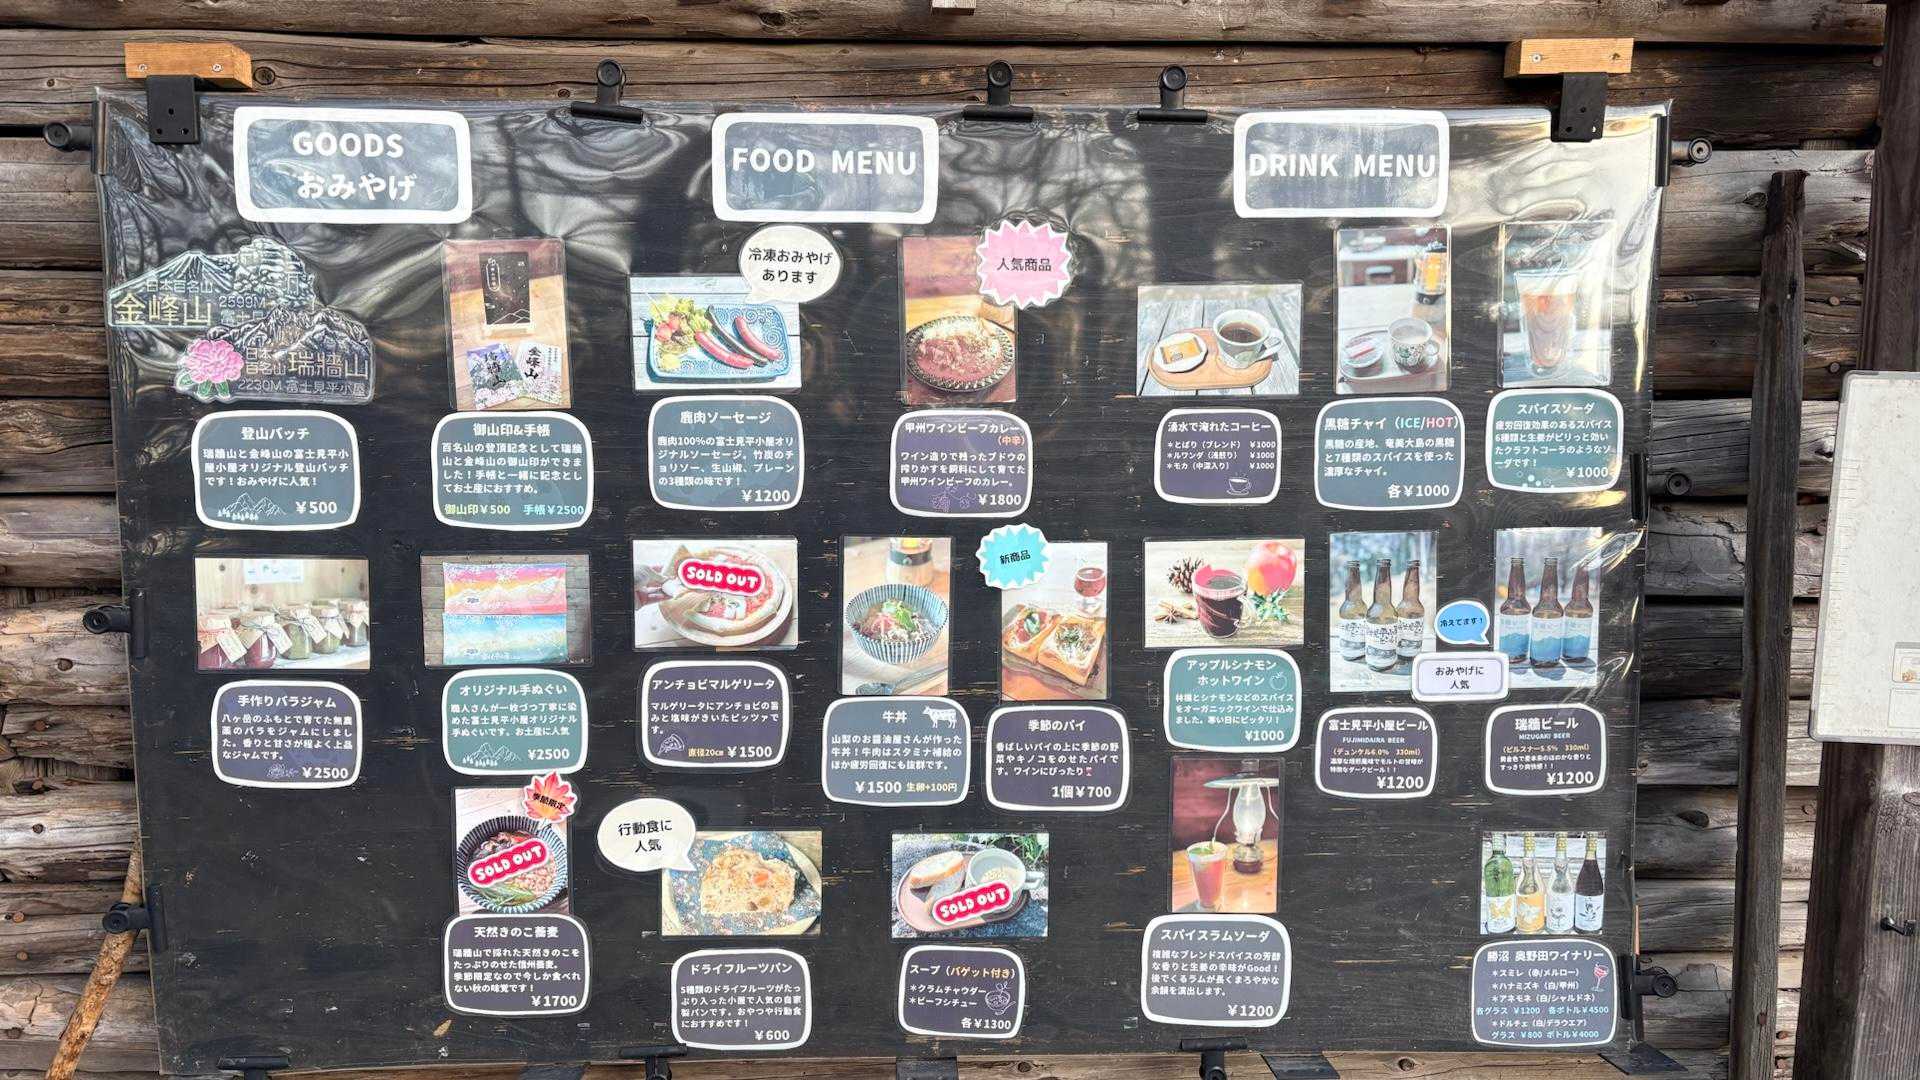 GOODS
おみやげ
FOOD MENU
DRINK MENU
日本百名山
金峰山 2599M
富士見
日本
百名山 瑞牆山
2230M 富士見平小屋
登山バッチ
瑞牆山と金峰山の富士見平小
屋小屋オリジナル登山バッチ
です！おみやげに人気！
￥500
瑞牆山
金峰山
御山印&手帳
百名山の登頂記念として瑞牆
山と金峰山の御山印ができま
した！手帳と一緒に記念とし
てお土産におすすめ。
御山印￥500 手帳￥2500
冷凍おみやげ
あります
鹿肉ソーセージ
鹿肉100%の富士見平小屋オリ
ジナルソーセージ。竹炭のチ
ョリソー、生山椒、プレーン
の3種類の味です！
￥1200
人気商品
甲州ワインビーフカレー
（中辛）
ワイン造りで残ったブドウの
搾りかすを飼料にして育てた
甲州ワインビーフのカレー。
￥1800
湧水で淹れたコーヒー
＊とばり（ブレンド） ￥1000
＊ルワンダ（浅煎り） ￥1000
＊モカ（中深入り） ￥1000
黒糖チャイ（ICE/HOT）
黒糖の産地、奄美大島の黒糖
と7種類のスパイスを使った
濃厚なチャイ。
各￥1000
スパイスソーダ
疲労回復効果のあるスパイス
6種類と生姜がピリっと効い
たクラフトコーラのようなソ
ーダです！
￥1000
手作りバラジャム
八ヶ岳のふもとで育てた無農
薬のバラをジャムにしまし
た。香りと甘さが程よく上品
なジャムです。
￥2500
オリジナル手ぬぐい
職人さんが一枚づつ丁寧に染
めた富士見平小屋オリジナル
手ぬぐいです。お土産に人気
￥2500
SOLD OUT
アンチョビマルゲリータ
マルゲリータにアンチョビの旨
みと塩味がきいたピッツァで
す。
直径20㎝ ￥1500
牛丼
山梨のお醤油屋さんが作った
牛丼！牛肉はスタミナ補給の
ほか疲労回復にも抜群です。
￥1500 生卵+100円
新商品
季節のパイ
香ばしいパイの上に季節の野
菜やキノコをのせたパイで
す。ワインにぴったり
1個￥700
アップルシナモン
ホットワイン
林檎とシナモンなどのスパイス
をオーガニックワインで仕込み
ました。寒い日にピッタリ！
￥1000
冷えてます！
おみやげに
人気
富士見平小屋ビール
FUJIMIDAIRA BEER
（デュンケル6.0% 330ml）
濃厚な焙煎風味でモルトの甘味が
特徴なダークビール！！
￥1200
瑞牆ビール
MIZUGAKI BEER
（ピルスナー5.5% 330ml）
黄金色で麦本来のほのかな香りと
すっきり爽快感！！
￥1200
季節限定
SOLD OUT
天然きのこ蕎麦
瑞牆山で採れた天然きのこを
たっぷりのせた信州蕎麦。
季節限定なので今しか食べれ
ない秋の味覚です！
￥1700
行動食に
人気
ドライフルーツパン
5種類のドライフルーツがたっ
ぷり入った小屋で人気の自家
製パンです。おやつや行動食
におすすめです！
￥600
SOLD OUT
スープ（バゲット付き）
＊クラムチャウダー
＊ビーフシチュー
各￥1300
スパイスラムソーダ
複雑なブレンドスパイスの芳醇
な香りと生姜の辛味がGood！
後でくるラムが長くまろやかな
余韻を演出します。
￥1200
勝沼 奥野田ワイナリー
＊スミレ（赤/メルロー）
＊ハナミズキ（白/甲州）
＊アネモネ（白/シャルドネ）
各グラス ￥1200 各ボトル￥4500
＊ドルチェ（白/デラウエア）
グラス ￥800 ボトル￥4000